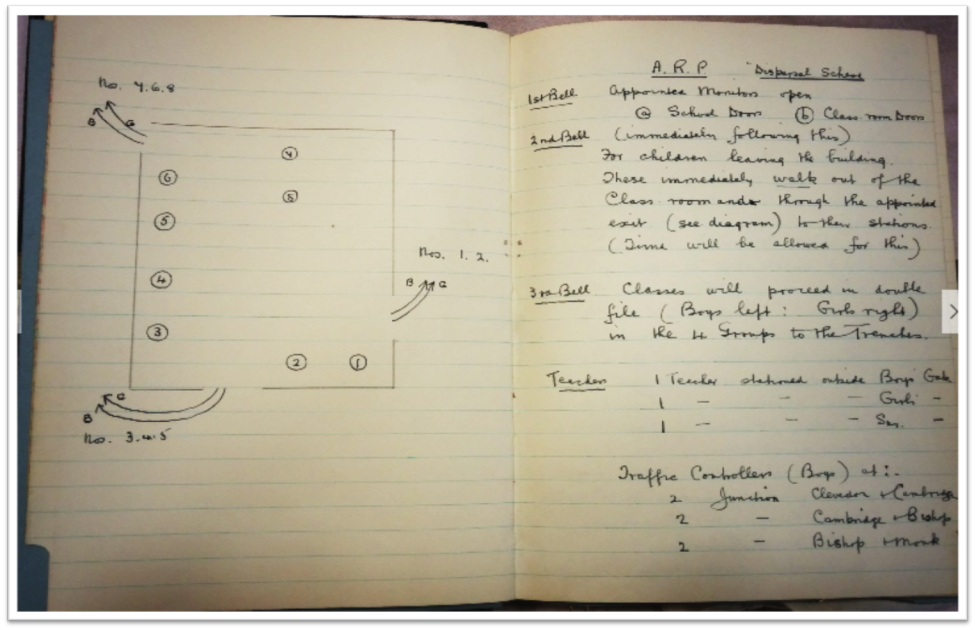 No. 7.6.8
B G
7
6
8
5
Nos. 1. 2.
4
B G
3
2 1
G
B
No. 3.4.5
A.R.P Dispersal Scheme
1st Bell Appointed Monitors open
a School Doors b Class room Doors
2nd Bell (immediately following this)
For children leaving the building.
These immediately walk out of the
Class room and through the appointed
exit (see diagram) to their stations.
(Time will be allowed for this)
3rd Bell Classes will proceed in double
file (Boys left : Girls right)
in the 4 Groups to the Trenches.
Teachers 1 Teacher stationed outside Boys Gate
1 — — — Girls —
1 — — — —
Traffic Controllers (Boys) at :-
2 Junction Clevedon + Cambridge
2 — Cambridge + Bishop
2 — Bishop + Monk